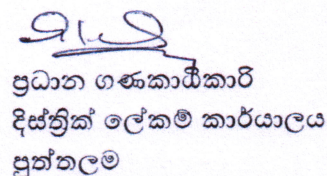 ප්‍රධාන ගණකාධිකාරි
දිස්ත්‍රික් ලේකම් කාර්යාලය
පුත්තලම